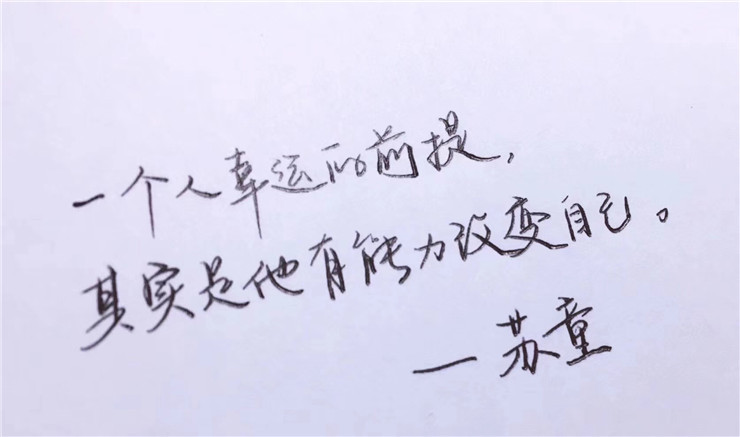 一个人幸运的前提，
其实是他有能力改变自己。
—苏童